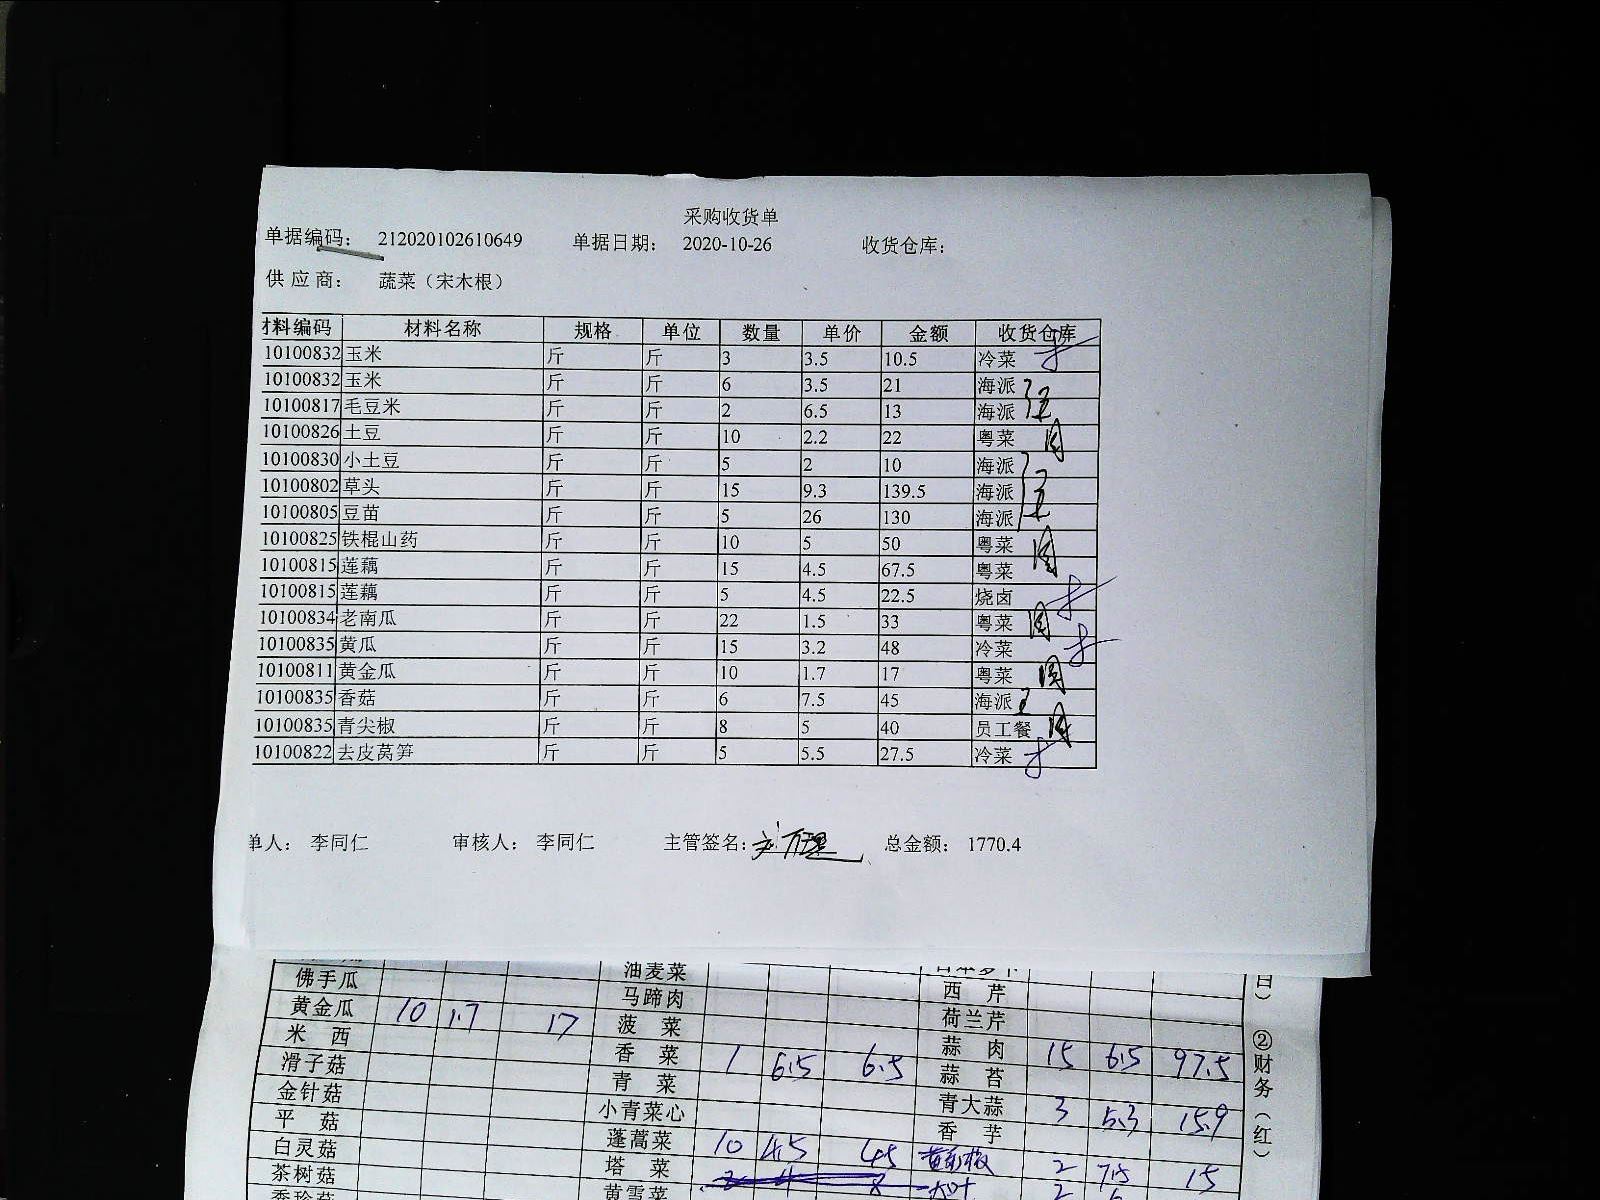 采购收货单
单据编码： 212020102610649 单据日期： 2020-10-26 收货仓库：
供应商： 蔬菜（宋木根）
材料编码 材料名称 规格 单位 数量 单价 金额 收货仓库
10100832 玉米 斤 斤 3 3.5 10.5 冷菜
10100832 玉米 斤 斤 6 3.5 21 海派
10100817 毛豆米 斤 斤 2 6.5 13 海派
10100826 土豆 斤 斤 10 2.2 22 粤菜
10100830 小土豆 斤 斤 5 2 10 海派
10100802 草头 斤 斤 15 9.3 139.5 海派
10100805 豆苗 斤 斤 5 26 130 海派
10100825 铁棍山药 斤 斤 10 5 50 粤菜
10100815 莲藕 斤 斤 15 4.5 67.5 粤菜
10100815 莲藕 斤 斤 5 4.5 22.5 烧卤
10100834 老南瓜 斤 斤 22 1.5 33 粤菜
10100835 黄瓜 斤 斤 15 3.2 48 冷菜
10100811 黄金瓜 斤 斤 10 1.7 17 粤菜
10100835 香菇 斤 斤 6 7.5 45 海派
10100835 青尖椒 斤 斤 8 5 40 员工餐
10100822 去皮莴笋 斤 斤 5 5.5 27.5 冷菜
单人： 李同仁 审核人： 李同仁 主管签名： 总金额： 1770.4
佛手瓜 油麦菜 西芹
黄金瓜 10 1.7 17 马蹄肉 荷兰芹
米西 菠菜 蒜肉 15 6.5 97.5
滑子菇 香菜 1 6.5 6.5 蒜苔
金针菇 青菜 青大蒜 3 5.3 15.9
平菇 小青菜心 香芋
白灵菇 蓬蒿菜 10 4.5 45 2 7.5 15
茶树菇 塔菜
黄雪菜
日） ②财务（红）